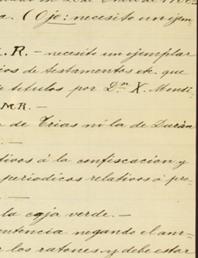 (Ojo: necesito un ejem
L. R. – necesito un ejemplar
cios de testamentos etc. que
e titulos por Dn X. Mendi
M.R. –
a de Trias ni la de Durán
ativos á la confiscacion y
periodicos relativos á pro
la caja verde. –
entencia negando el am
r los ratones, y debe estar